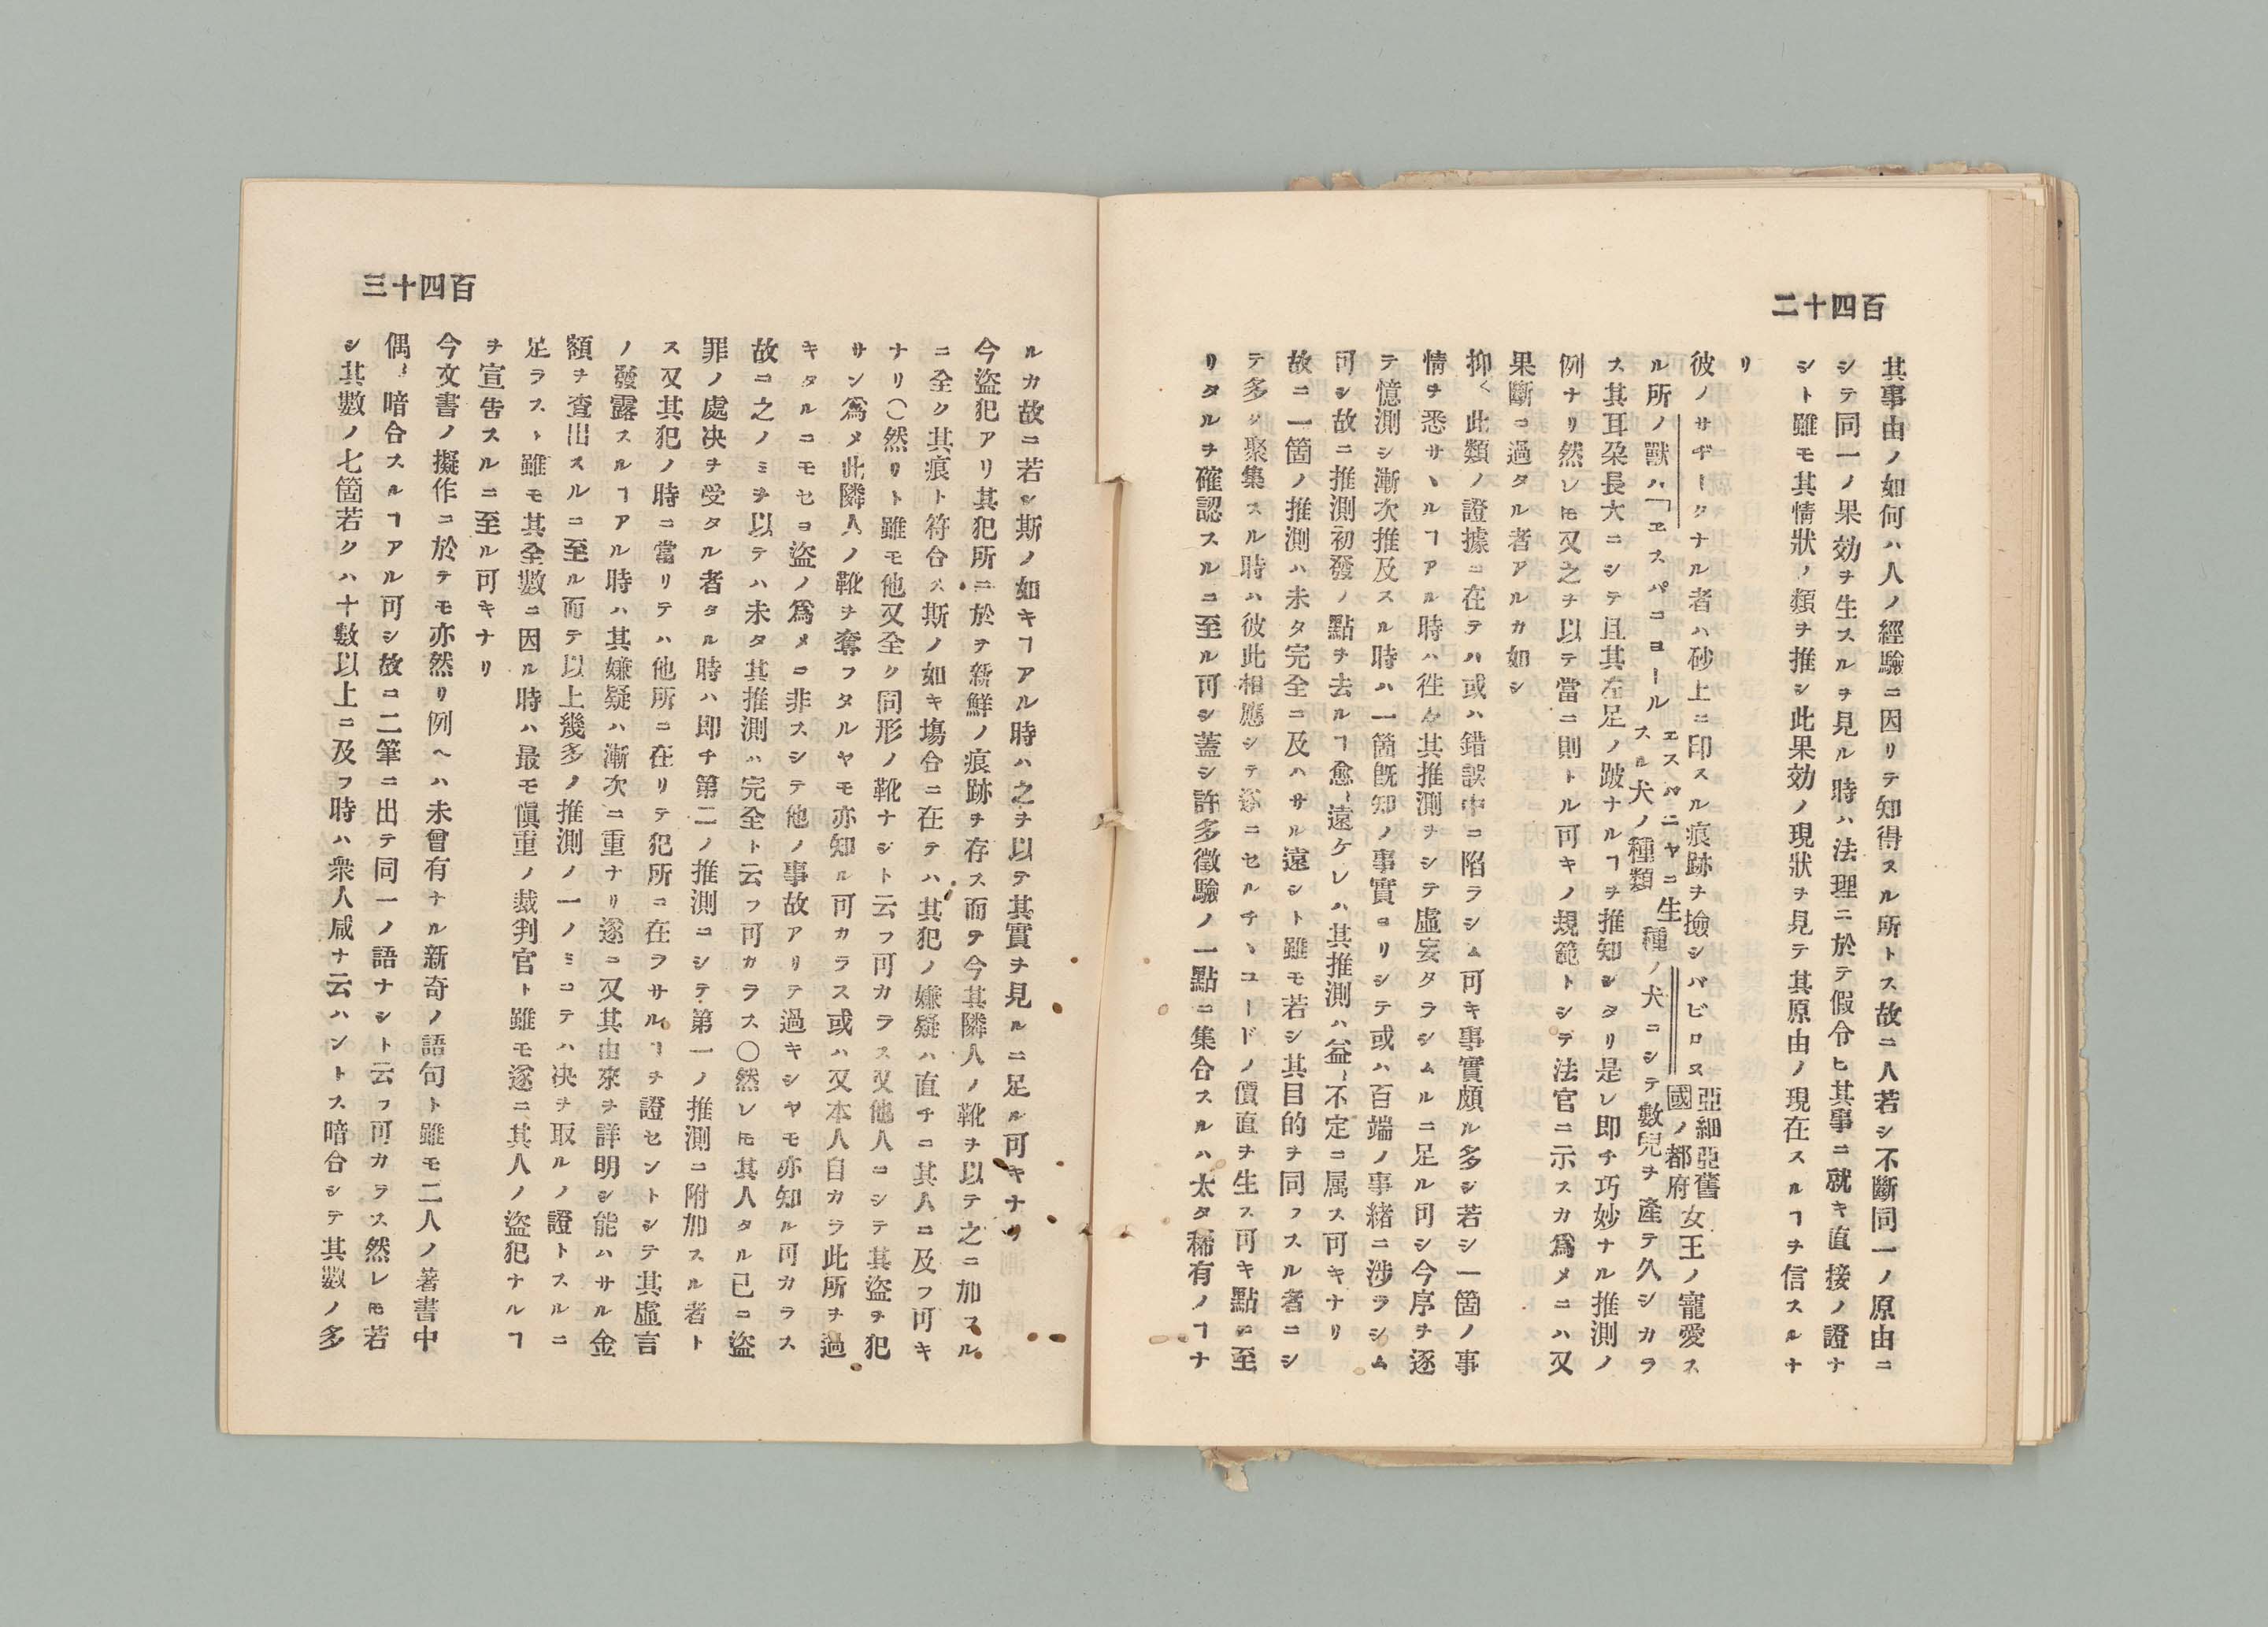 百四十二
其事由ノ如何ハ人ノ經驗ニ因リテ知得スル所トス故ニ人若シ不斷同一ノ原由ニ
シテ同一ノ果効ヲ生スルヲ見ル時ハ法理ニ於テ假令ヒ其事ニ就キ直接ノ證ナ
シト雖モ其情狀ノ類ヲ推シ此果効ノ現狀ヲ見テ其原由ノ現在スルヿヲ信スルナ
リ
彼ノサヂークナル者ハ砂上ニ印スル痕跡ヲ撿シバビロス亞細亞舊國ノ都府女王ノ寵愛ス
ル所ノ獸ハ「ヱスパコヨールエスパニヤニ生スル犬ノ種類種ノ犬ニシテ數兒ヲ產テ久シカラ
ス其耳朶長大ニシテ且其左足ノ跛ナルヿヲ推知シタリ是レ即チ巧妙ナル推測ノ
例ナリ然レ𪜈又之ヲ以テ當ニ則トル可キノ規範トシテ法官ニ示スカ爲メニハ又
果斷ニ過タル者アルカ如シ
抑〱此類ノ證據ニ在テハ或ハ錯誤中ニ陷ラシム可キ事實頗ル多シ若シ一箇ノ事
情ヲ悉サヽルヿアル時ハ徃々其推測ヲシテ虛妄タラシムルニ足ル可シ今序ヲ逐
テ憶測シ漸次推及スル時ハ一箇既知ノ事實ヨリシテ或ハ百端ノ事緒ニ涉ラシム
可シ故ニ推測初發ノ點ヲ去ルヿ愈〻遠ケレハ其推測ハ益〻不定ニ属ス可キナリ
故ニ一箇ノ推測ハ未タ完全ニ及ハサル遠シト雖モ若シ其目的ヲ同フスル者ニシ
テ多ク聚集スル時ハ彼此相應シテ遂ニセルチヽユードノ價直ヲ生ス可キ點ニ至
リタルヲ確認スルニ至ル可シ蓋シ許多徵驗ノ一點ニ集合スルハ太タ稀有ノヿナ
百四十三
ルカ故ニ若シ斯ノ如キヿアル時ハ之ヲ以テ其實ヲ見ルニ足ル可キナリ
今盜犯アリ其犯所ニ於テ新鮮ノ痕跡ヲ存ス而テ今其隣人ノ靴ヲ以テ之ニ加フル
ニ全ク其痕ト符合ス斯ノ如キ塲合ニ在テハ其犯ノ嫌疑ハ直チニ其人ニ及フ可キ
ナリ〇然リト雖モ他又全ク同形ノ靴ナシト云フ可カラス又他人ニシテ其盜ヲ犯
サン爲メ此隣人ノ靴ヲ奪フタルヤモ亦知ル可カラス或ハ又本人自カラ此所ヲ過
キタルニモセヨ盜ノ爲メニ非スシテ他ノ事故アリテ過キシヤモ亦知ル可カラス
故ニ之ノミヲ以テハ未タ其推測ハ完全ト云フ可カラス〇然レ𪜈其人タル已ニ盜
罪ノ處決ヲ受タル者タル時ハ即チ第二ノ推測ニシテ第一ノ推測ニ附加スル者ト
ス又其犯ノ時ニ當リテハ他所ニ在リテ犯所ニ在ラサルヿヲ證セントシテ其虛言
ノ發露スルヿアル時ハ其嫌疑ハ漸次ニ重ナリ遂ニ又其由來ヲ詳明シ能ハサル金
額ヲ査出スルニ至ル而テ以上幾多ノ推測ノ一ノミニテハ决ヲ取ルノ證トスルニ
足ラスト雖モ其全數ニ因ル時ハ最モ愼重ノ裁判官ト雖モ遂ニ其人ノ盜犯ナルヿ
ヲ宣告スルニ至ル可キナリ
今文書ノ擬作ニ於テモ亦然リ例ヘハ未曾有ナル新奇ノ語句ト雖モ二人ノ著書中
偶〻暗合スルヿアル可シ故ニ二筆ニ出テ同一ノ語ナシト云フ可カラス然レ𪜈若
シ其數ノ七箇若クハ十數以上ニ及フ時ハ衆人咸ナ云ハントス暗合シテ其數ノ多